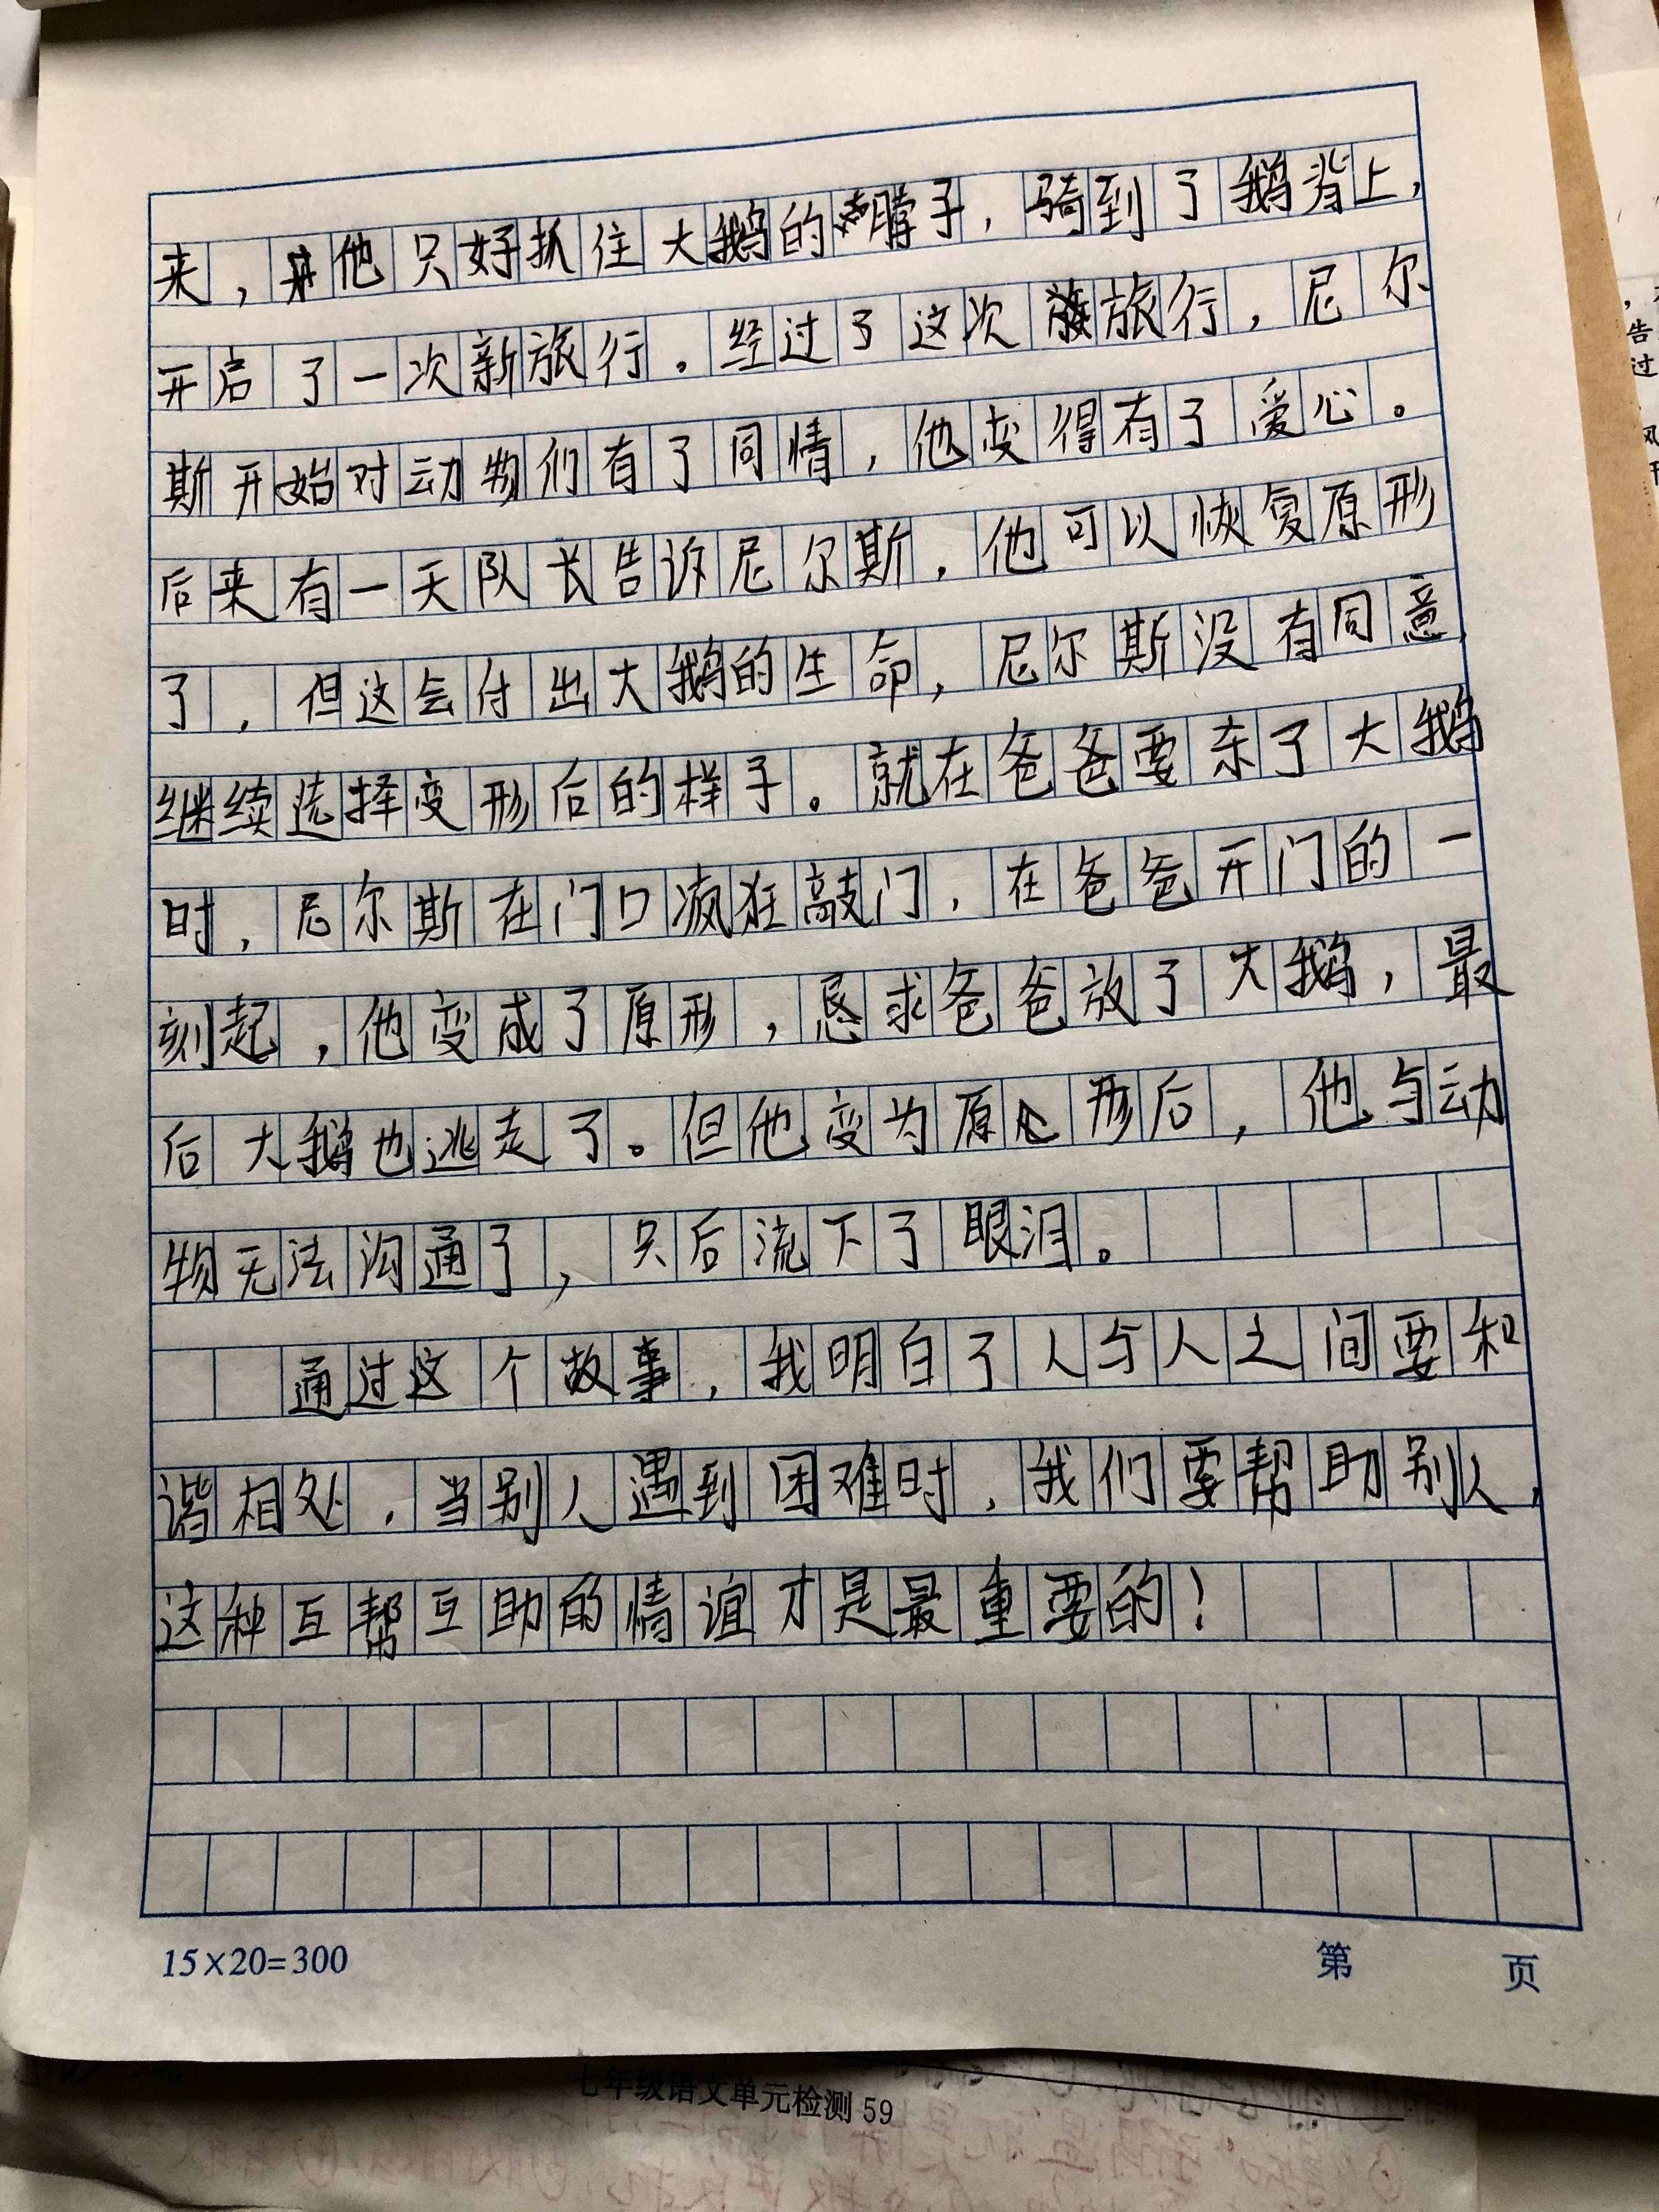 来，他只好抓住大鹅的脖子，骑到了鹅背上，
开启了一次新旅行。经过了这次旅行，尼尔
斯开始对动物们有了同情，他变得有了爱心。
后来有一天队长告诉尼尔斯，他可以恢复原形
了，但这会付出大鹅的生命，尼尔斯没有同意，
继续选择变形后的样子。就在爸爸要杀了大鹅
时，尼尔斯在门口疯狂敲门，在爸爸开门的一
刻起，他变成了原形，恳求爸爸放了大鹅，最
后大鹅也逃走了。但他变为原形后，他与动
物无法沟通了，只后流下了眼泪。
通过这个故事，我明白了人与人之间要和
谐相处，当别人遇到困难时，我们要帮助别人，
这种互帮互助的情谊才是最重要的！
15×20=300
第 页
七年级语文单元检测 59
告
过